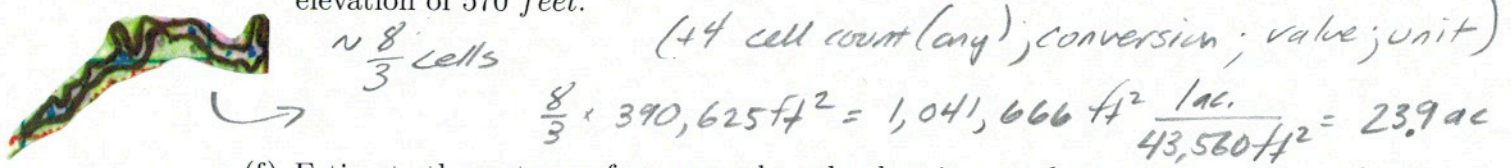 elevation of 570 feet.
~ 8/3 cells
(+4 cell count (any); conversion; value; unit)
8/3 · 390,625 ft² = 1,041,666 ft² 1 ac. / 43,560 ft² = 23.9 ac